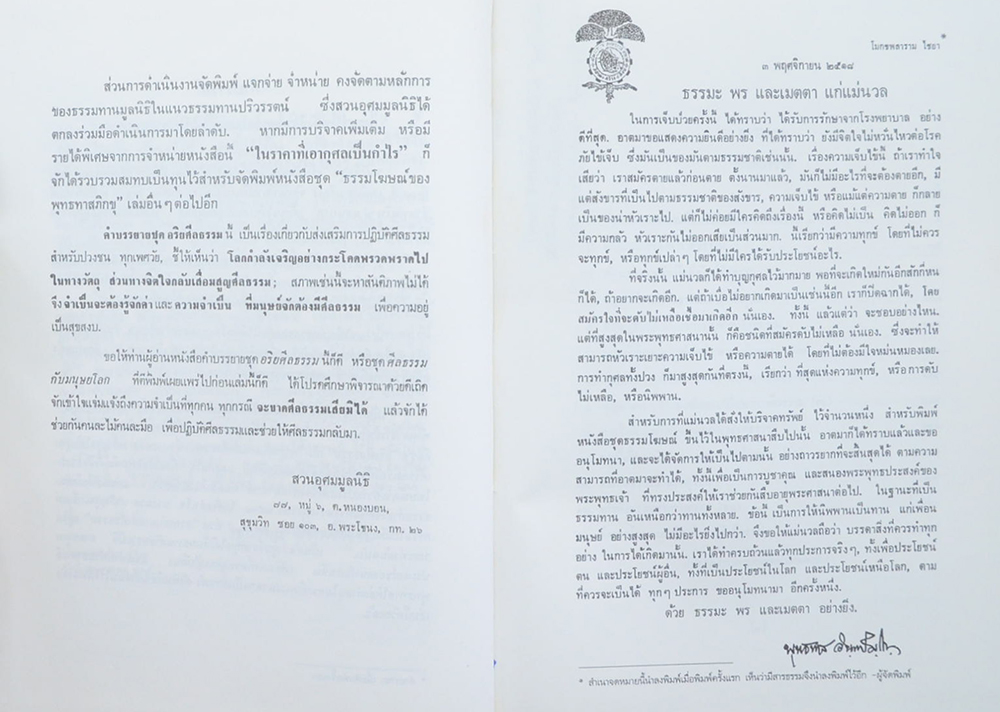 ส่วนการดำเนินงานจัดพิมพ์ แจกจ่าย จำหน่าย คงจัดตามหลักการ
ของธรรมทานมูลนิธิในแนวธรรมทานปริวรรตน์ ซึ่งสวนอุศมมูลนิธิได้
ตกลงร่วมมือดำเนินการมาโดยลำดับ. หากมีการบริจาคเพิ่มเติม หรือมี
รายได้พิเศษจากการจำหน่ายหนังสือนี้ “ในราคาที่เอากุศลเป็นกำไร” ก็
จักได้รวบรวมสมทบเป็นทุนไว้สำหรับจัดพิมพ์หนังสือชุด “ธรรมโฆษณ์ของ
พุทธทาสภิกขุ” เล่มอื่นๆต่อไปอีก
คำบรรยายชุด อริยศีลธรรม นี้ เป็นเรื่องเกี่ยวกับส่งเสริมการปฏิบัติศีลธรรม
สำหรับปวงชน ทุกเพศวัย, ชี้ให้เห็นว่า โลกกำลังเจริญอย่างกระโดดพรวดพราดไป
ในทางวัตถุ ส่วนทางจิตใจกลับเสื่อมสูญศีลธรรม; สภาพเช่นนี้จะหาสันติภาพไม่ได้
จึงจำเป็นจะต้องรู้จักค่า และ ความจำเป็น ที่มนุษย์จักต้องมีศีลธรรม เพื่อความอยู่
เป็นสุขสงบ.
ขอให้ท่านผู้อ่านหนังสือคำบรรยายชุด อริยศีลธรรม นี้ก็ดี หรือชุด ศีลธรรม
กับมนุษยโลก ที่พิมพ์เผยแพร่ไปก่อนเล่มนี้ก็ดี ได้โปรดศึกษาพิจารณาด้วยดีเถิด
จักเข้าใจแจ่มแจ้งถึงความจำเป็นที่ทุกคน ทุกกรณี จะขาดศีลธรรมเสียมิได้ แล้วจักได้
ช่วยกันคนละไม้คนละมือ เพื่อปฏิบัติศีลธรรมและช่วยให้ศีลธรรมกลับมา.
สวนอุศมมูลนิธิ
๘๗, หมู่ ๖, ต.หนองบอน,
สุขุมวิท ซอย ๑๐๓, อ.พระโขนง, กท. ๒๖
โมกขพลาราม ไชยา*
๓ พฤศจิกายน ๒๕๑๘
ธรรมะ พร และเมตตา แก่แม่นวล
ในการเจ็บป่วยครั้งนี้ ได้ทราบว่า ได้รับการรักษาจากโรงพยาบาล อย่าง
ดีที่สุด. อาตมาขอแสดงความยินดีอย่างยิ่ง ที่ได้ทราบว่า ยังมีจิตใจไม่หวั่นไหวต่อโรค
ภัยไข้เจ็บ ซึ่งมันเป็นของมันตามธรรมชาติเช่นนั้น. เรื่องความเจ็บไข้นี้ ถ้าเราทำใจ
เสียว่า เราสมัครตายแล้วก่อนตาย ตั้งนานมาแล้ว, มันก็ไม่มีอะไรที่จะต้องตายอีก, มี
แต่สังขารที่เป็นไปตามธรรมชาติของสังขาร, ความเจ็บไข้ หรือแม้แต่ความตาย ก็กลาย
เป็นของน่าหัวเราะไป. แต่ก็ไม่ค่อยมีใครคิดถึงเรื่องนี้ หรือคิดไม่เป็น คิดไม่ออก ก็
มีความกลัว หัวเราะกันไม่ออกเสียเป็นส่วนมาก. นี้เรียกว่ามีความทุกข์ โดยที่ไม่ควร
จะทุกข์, หรือทุกข์เปล่าๆ โดยที่ไม่มีใครได้รับประโยชน์อะไร.
ที่จริงนั้น แม่นวลก็ได้ทำบุญกุศลไว้มากมาย พอที่จะเกิดใหม่กันอีกสักกี่หน
ก็ได้, ถ้าอยากจะเกิดอีก. แต่ถ้าเบื่อไม่อยากเกิดมาเป็นเช่นนี้อีก เราก็ปิดฉากได้, โดย
สมัครใจที่จะดับไม่เหลือเชื้อมาเกิดอีก นั่นเอง. ทั้งนี้ แล้วแต่ว่า จะชอบอย่างไหน.
แต่ที่สูงสุดในพระพุทธศาสนานั้น ก็คือชนิดที่สมัครดับไม่เหลือ นั่นเอง. ซึ่งจะทำให้
สามารถหัวเราะเยาะความเจ็บไข้ หรือความตายได้ โดยที่ไม่ต้องมีใจหม่นหมองเลย.
การทำกุศลทั้งปวง ก็มาสูงสุดกันที่ตรงนี้, เรียกว่า ที่สุดแห่งความทุกข์, หรือการดับ
ไม่เหลือ, หรือนิพพาน.
สำหรับการที่แม่นวลได้สั่งให้บริจาคทรัพย์ ไว้จำนวนหนึ่ง สำหรับพิมพ์
หนังสือชุดธรรมโฆษณ์ ขึ้นไว้ในพุทธศาสนาสืบไปนั้น อาตมาก็ได้ทราบแล้วและขอ
อนุโมทนา, และจะได้จัดการให้เป็นไปตามนั้น อย่างถาวรยากที่จะสิ้นสุดได้ ตามความ
สามารถที่อาตมาจะทำได้, ทั้งนี้เพื่อเป็นการบูชาคุณ และสนองพระพุทธประสงค์ของ
พระพุทธเจ้า ที่ทรงประสงค์ให้เราช่วยกันสืบอายุพระศาสนาต่อไป. ในฐานะที่เป็น
ธรรมทาน อันเหนือกว่าทานทั้งหลาย. ข้อนี้ เป็นการให้นิพพานเป็นทาน แก่เพื่อน
มนุษย์ อย่างสูงสุด ไม่มีอะไรยิ่งไปกว่า. จึงขอให้แม่นวลถือว่า บรรดาสิ่งที่ควรทำทุก
อย่าง ในการได้เกิดมานั้น. เราได้ทำครบถ้วนแล้วทุกประการจริงๆ, ทั้งเพื่อประโยชน์
ตน และประโยชน์ผู้อื่น, ทั้งที่เป็นประโยชน์ในโลก และประโยชน์เหนือโลก, ตาม
ที่ควรจะเป็นได้ ทุกๆ ประการ ขออนุโมทนามา อีกครั้งหนึ่ง.
ด้วย ธรรมะ พร และเมตตา อย่างยิ่ง.
พุทธทาส อินฺทปญฺโญ
* สำเนาจดหมายนี้นำลงพิมพ์เมื่อพิมพ์ครั้งแรก เห็นว่ามีสารธรรมจึงนำลงพิมพ์ไว้อีก -ผู้จัดพิมพ์